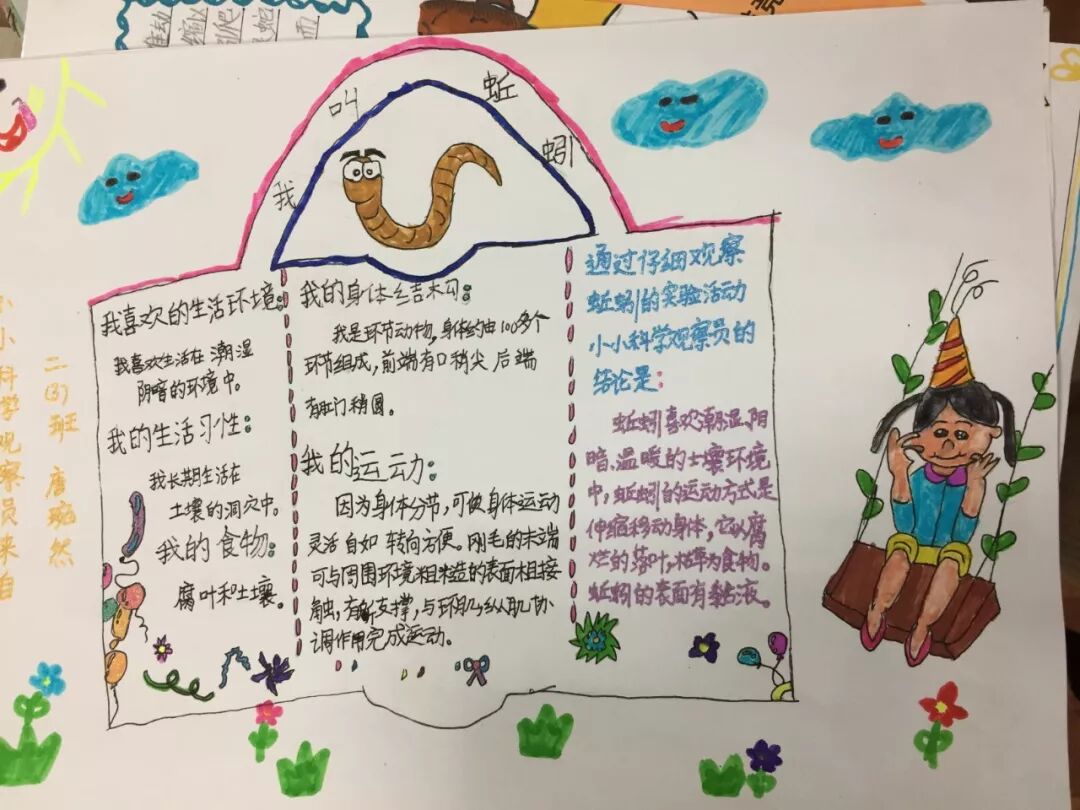 我叫蚯蚓
我喜欢的生活环境:
我喜欢生活在潮湿
阴暗的环境中。
我的生活习性:
我长期生活在
土壤的洞穴中。
我的食物:
腐叶和土壤。
我的身体结构:
我是环节动物,身体约由100多个
环节组成,前端有口稍尖 后端
有肛门稍圆。
我的运动:
因为身体分节,可使身体运动
灵活自如 转向方便。刚毛的末端
可与周围环境粗糙的表面相接
触,有所支撑,与环肌,纵肌协
调作用完成运动。
通过仔细观察
蚯蚓的实验活动
小小科学观察员的
结论是:
蚯蚓喜欢潮湿、阴
暗、温暖的土壤环境
中,蚯蚓的运动方式是
伸缩移动身体,它以腐
烂的落叶,枯草为食物。
蚯蚓的表面有黏液。
小小科学观察员来自
二(3)班 唐